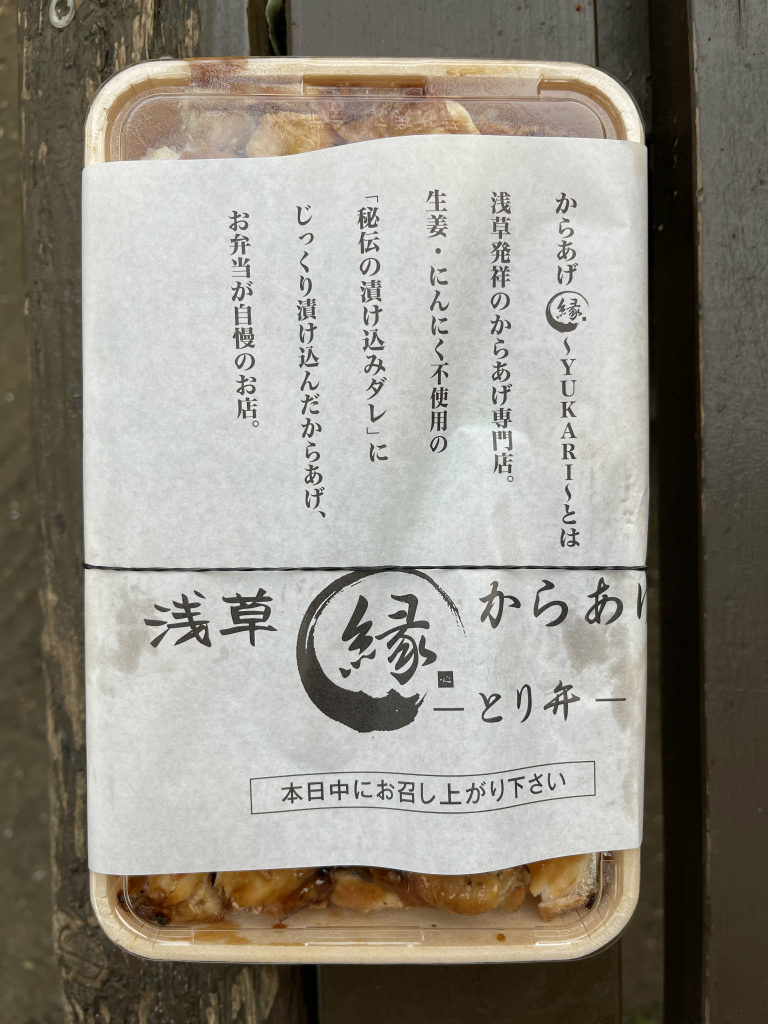 からあげ縁~YUKARI~とは
浅草発祥のからあげ専門店。
生姜・にんにく不使用の
「秘伝の漬け込みダレ」に
じっくり漬け込んだからあげ、
お弁当が自慢のお店。
浅草 縁 からあげ
―とり弁―
本日中にお召し上がり下さい